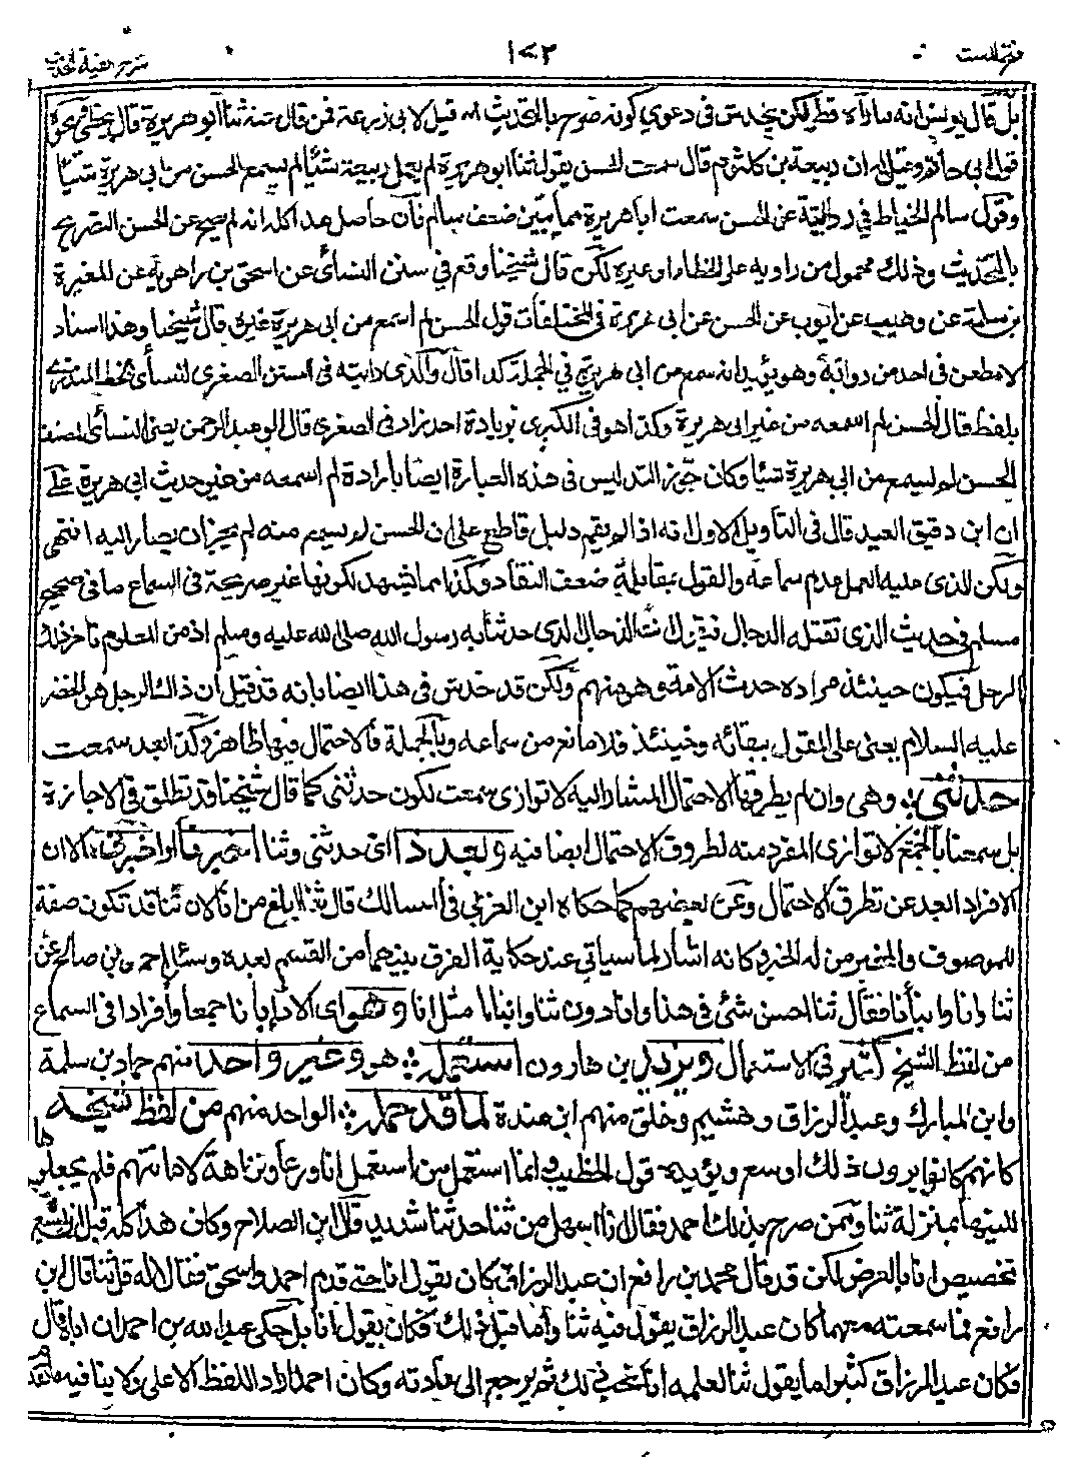 فتح المغيث
١٧٣
شرح الفية الحديث
بل قال يونس انه ما رآه قط لكن يخدش في دعوى كونه صرح بالتحديث انه قيل لابي زرعة فمن قال عنه ثنا ابو هريرة قال يخطئ ونحوه
قول ابي حاتم وقيل له ان ربيعة بن كلثوم قال سمعت الحسن يقول ثنا ابو هريرة لم يعمل ربيعة شيئا لم يسمع الحسن من ابي هريرة شيئا
وقول سالم الخياط في روايته عن الحسن سمعت ابا هريرة مما يبين ضعف سالم فان حاصل هذا كله انه لم يصح عن الحسن التصريح
بالتحديث وذلك محمول من راويه على الخطاء او غيره لكن قال شيخنا وقع في سنن النسائى عن اسحق بن راهويه عن المغيرة
بن سلمة عن وهيب عن ايوب عن الحسن عن ابى هريرة فى المختلعات قول الحسن لم اسمع من ابى هريرة غيره قال شيخنا وهذا اسناد
لا مطعن فى احد من رواته وهو يؤيد انه سمع من ابى هريرة في الجملة كذا قال والذى رايته فى السنن الصغرى للنسأى بخط المنذرى
بلفظ قال الحسن لم اسمعه من غير ابى هريرة وكذا هو فى الكبرى بزيادة احد زاد فى الصغرى قال ابو عبد الرحمن يعنى النسأى المصنف
الحسن لم يسمع من ابى هريرة شيئا وكان جوز التدليس فى هذه العبارة ايضا بارادة لم اسمعه من غير حديث ابى هريرة على
ان ابن دقيق العيد قال فى التأويل الاول انه اذا لم يقم دليل قاطع على ان الحسن لم يسمع منه لم يجز ان يصار اليه انتهى
ولكن الذى عليه العمل عدم سماعه والقول بمقابله ضعفه النقاد وكذا مما يشهد لكونها غير صريحة فى السماع ما فى صحيح
مسلم فى حديث الذى يقتله الدجال فيقول انت الدجال الذى حدثنا به رسول الله صلى الله عليه وسلم اذ من المعلوم تاخر ذلك
الرجل فيكون حينئذ مراده حدث الامة وهو منهم ولكن قد خدش فى هذا ايضا بانه قد قيل ان ذاك الرجل هو الخضر
عليه السلام يعنى على القول ببقائه وحينئذ فلا مانع من سماعه وبالجملة فالاحتمال فيها ظاهر وكذا بعد سمعت
حدثنى وهى وان لم يطرقها الاحتمال المشار اليه لا توازى سمعت لكون حدثنى كما قال شيخنا قد تطلق فى الاجازة
بل سمعنا بالجمع لا توازى المفرد منه لطروق الاحتمال ايضا فيه وبعد ذا اى حدثنى وثنا اخبرنا او اخبرنى الا ان
الافراد ابعد عن تطرق الاحتمال وعن بعضهم كما حكاه ابن العربي في المسالك قال ثنا ابلغ من انا لان ثنا قد تكون صفة
للموصوف والمخبر من له الخبر وكانه اشار لما سياتي عند حكاية الفرق بينهما من القسم بعده وسئل احمد بن صالح عن
ثنا وانا وانبأنا فقال ثنا احسن شئ فى هذا وانا دون ثنا وانبانا مثل انا وهو اى الاداء بانا جمعا وافرادا فى السماع
من لفظ الشيخ كثير فى الاستعمال ويزيد بن هارون استعمله هو وغير واحد منهم حماد بن سلمة
وابن المبارك وعبد الرزاق وهشيم وخلق منهم ابن مندة لما قد حمله الواحد منهم من لفظ شيخه
كانهم كانوا يرون ذلك اوسع ويؤيده قول الخطيب وانما استعمل من استعمل انا ورعا ونزاهة لامانتهم فلم يجعلوها
للينها بمنزلة ثنا وممن صرح بذلك احمد فقال انا اسهل من ثنا حدثنا شديد قال ابن الصلاح وكان هذا كله قبل ان يشيع
تخصيص انا بالعرض لكن قد قال محمد بن رافع ان عبد الرزاق كان يقول انا حتى قدم احمد واسحق فقالا له قل ثنا قال ابن
رافع فما سمعته معهما كان عبد الرزاق يقول فيه ثنا واما قبل ذلك فكان يقول انا بل حكى عبد الله بن احمد ان اباه قال
فكان عبد الرزاق كثيرا ما يقول ثنا لعلمه انا نحب ذلك ثم يرجع الى عادته وكان احمد اراد اللفظ الاعلى ولا ينافيه ما تقدم